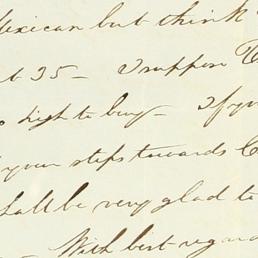 Mexican but think
at 35 - I suppose
high to buy - If you
your steps towards
shall be very glad to
- With best regards